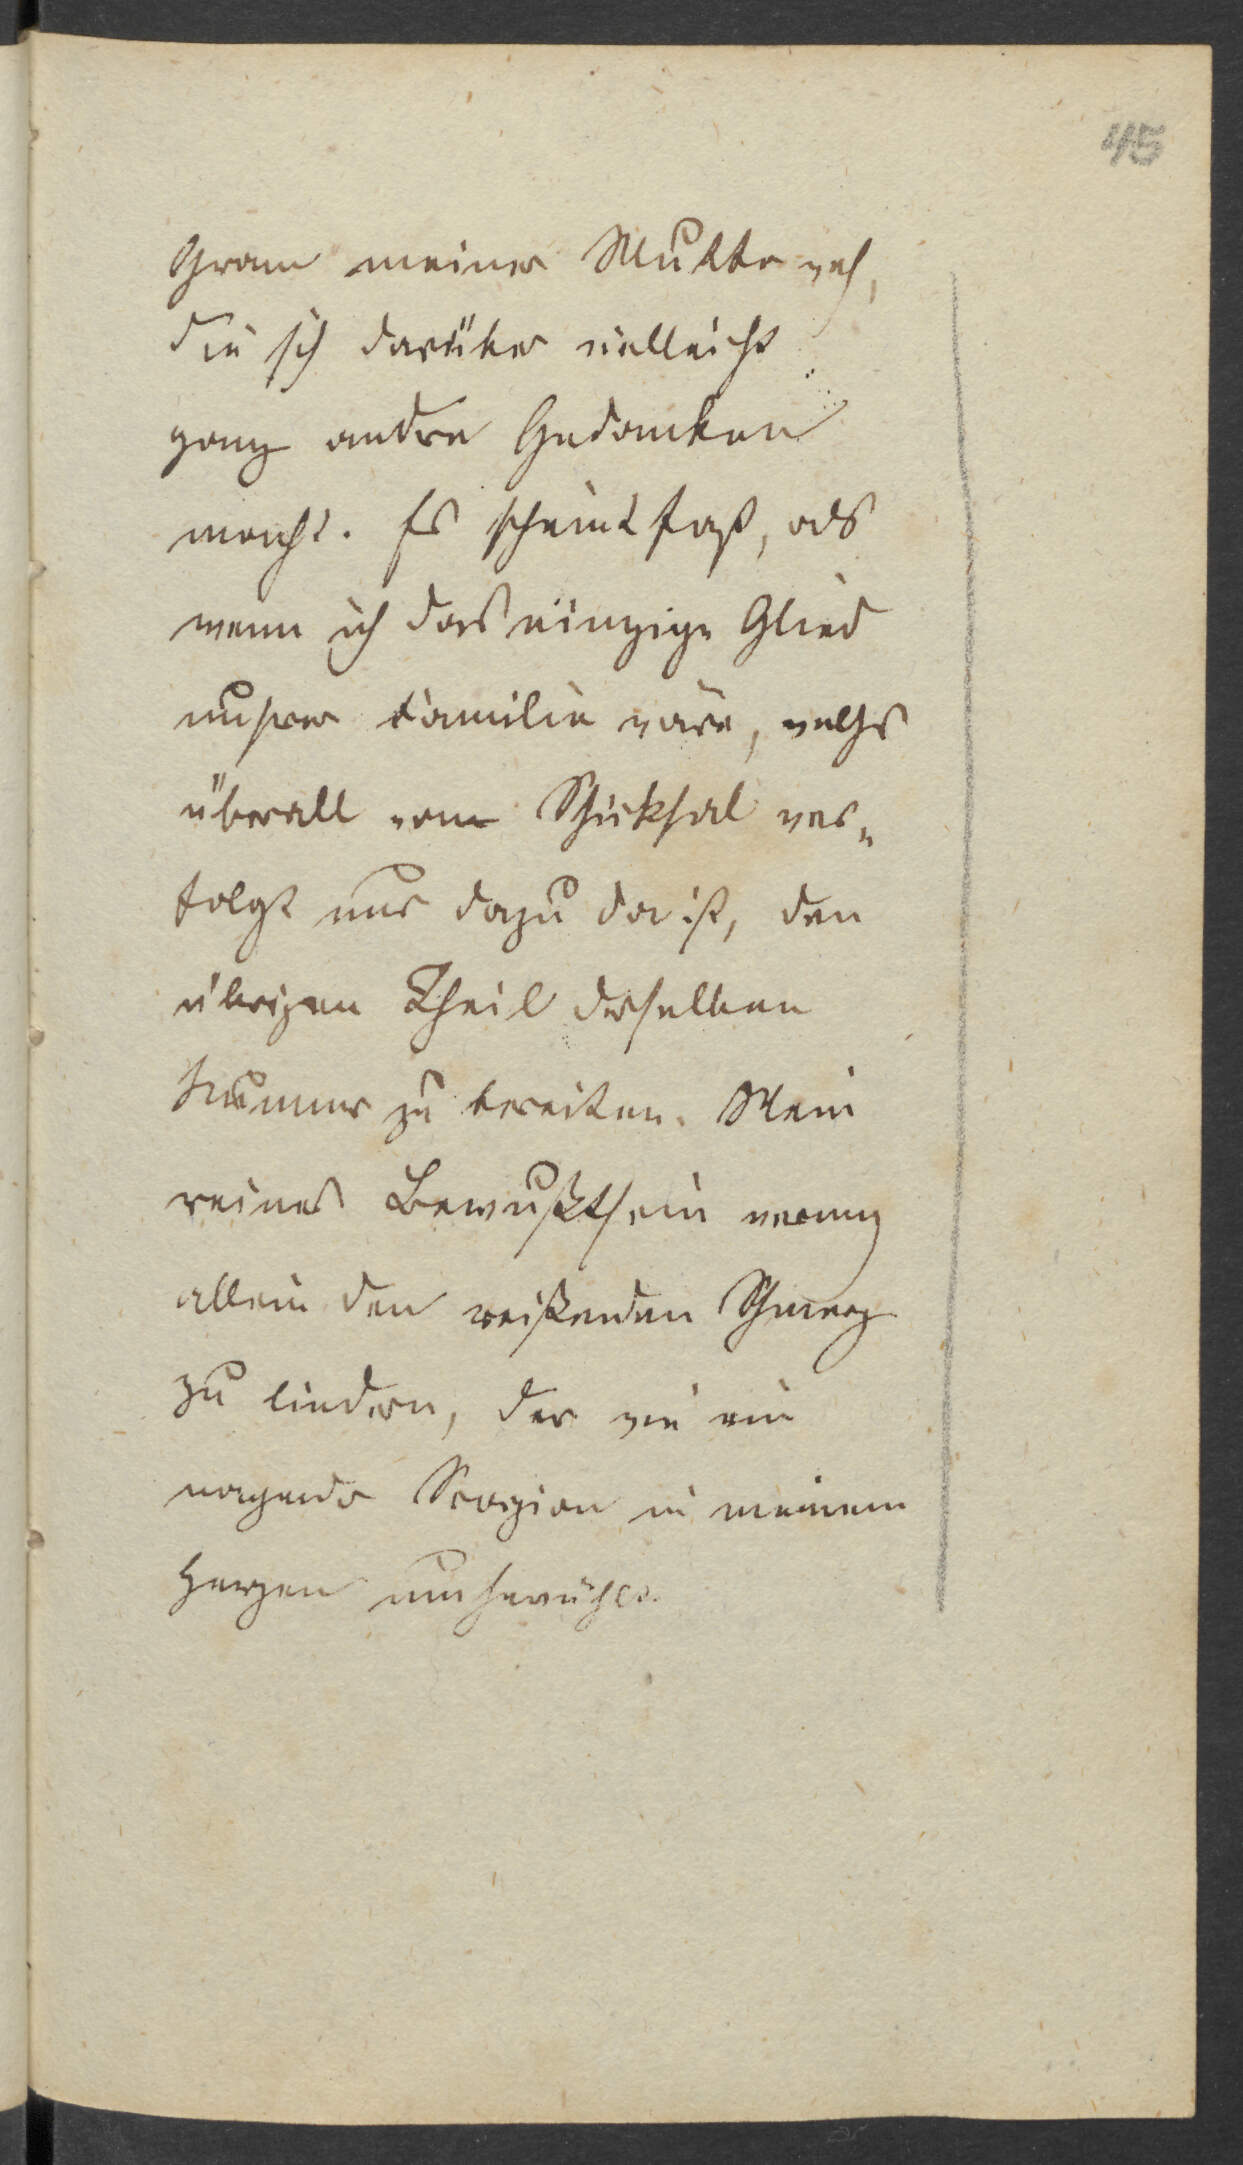 45
Gram meiner Mutter weh,
die sich darüber vielleicht
ganz andre Gedanken
macht. Es scheint fast, als
wenn ich das einzige Glied
unsrer Familie wäre, welches
überall vom Schicksal ver„
folgt nur dazu da ist, den
übrigen Theil derselben
Kummer zu bereiten. Mein
reines Bewußtsein vermag
allein den reißenden Schmerz
zu lindern, der wie ein
nagender Scorpion in meinem
Herzen umherwühlt.